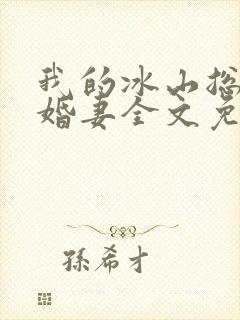 我的冰山总
婚妻全文免
孫希才